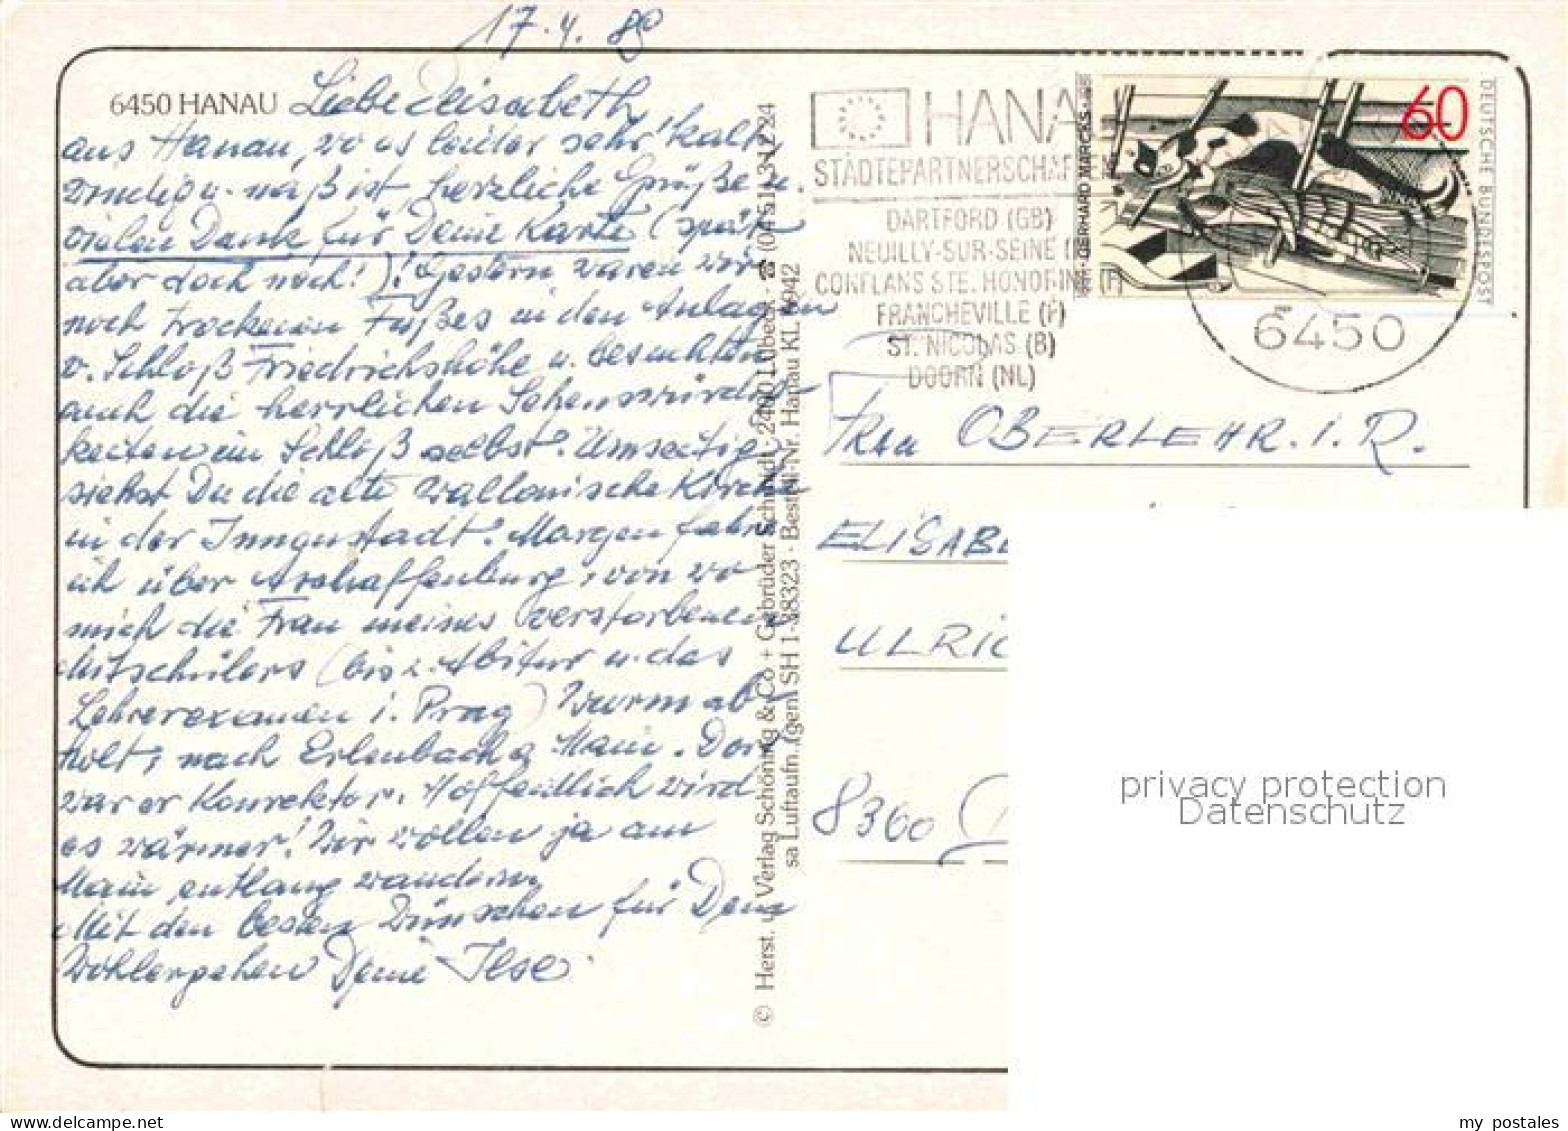 17.4.89
6450 HANAU Liebe Elisabeth,
aus Hanau, wo es leider sehr kalt,
windig u. naß ist, herzliche Grüße u.
vielen Dank für Deine Karte (spät
aber doch noch!)! Gestern waren wir
noch trockenen Fußes in den Anlagen
v. Schloß Friedrichshöhe u. besuchten
auch die herrlichen Sehenswürdig-
keiten im Schloß selbst. Umseitig
siehst Du die alte Wallonische Kirche
in der Innenstadt. Morgen fahre
ich über Aschaffenburg, von wo
mich die Frau meines verstorbenen
Mitschülers (bis z. Abitur u. das
Lehrerexamen i. Prag) Wurm ab-
holt, nach Erlenbach a. Main. Dort
war er Konrektor. Hoffentlich wird
es wärmer! Wir wollen ja am
Main entlang wandern.
Mit den besten Wünschen für Dein
Wohlergehen Deine Ilse.
© Herst. u. Verlag Schöning & Co + Gebrüder Schmidt · 2400 Lübeck · ☎ (0451) 3 12 24
sa Luftaufn. (gen. SH 1-88323 · Bestell-Nr. Hanau KL 6942
HANA
STÄDTEPARTNERSCHAFTEN
DARTFORD (GB)
NEUILLY-SUR-SEINE (
CONFLANS STE. HONORINE (F)
FRANCHEVILLE (F)
ST. NICOLAS (B)
DOORN (NL)
GERHARD MARCKS
60
DEUTSCHE BUNDESPOST
6450
Frau OBERLEHR. I. R.
ELISABE
ULRIC
8360
privacy protection
Datenschutz
my postales